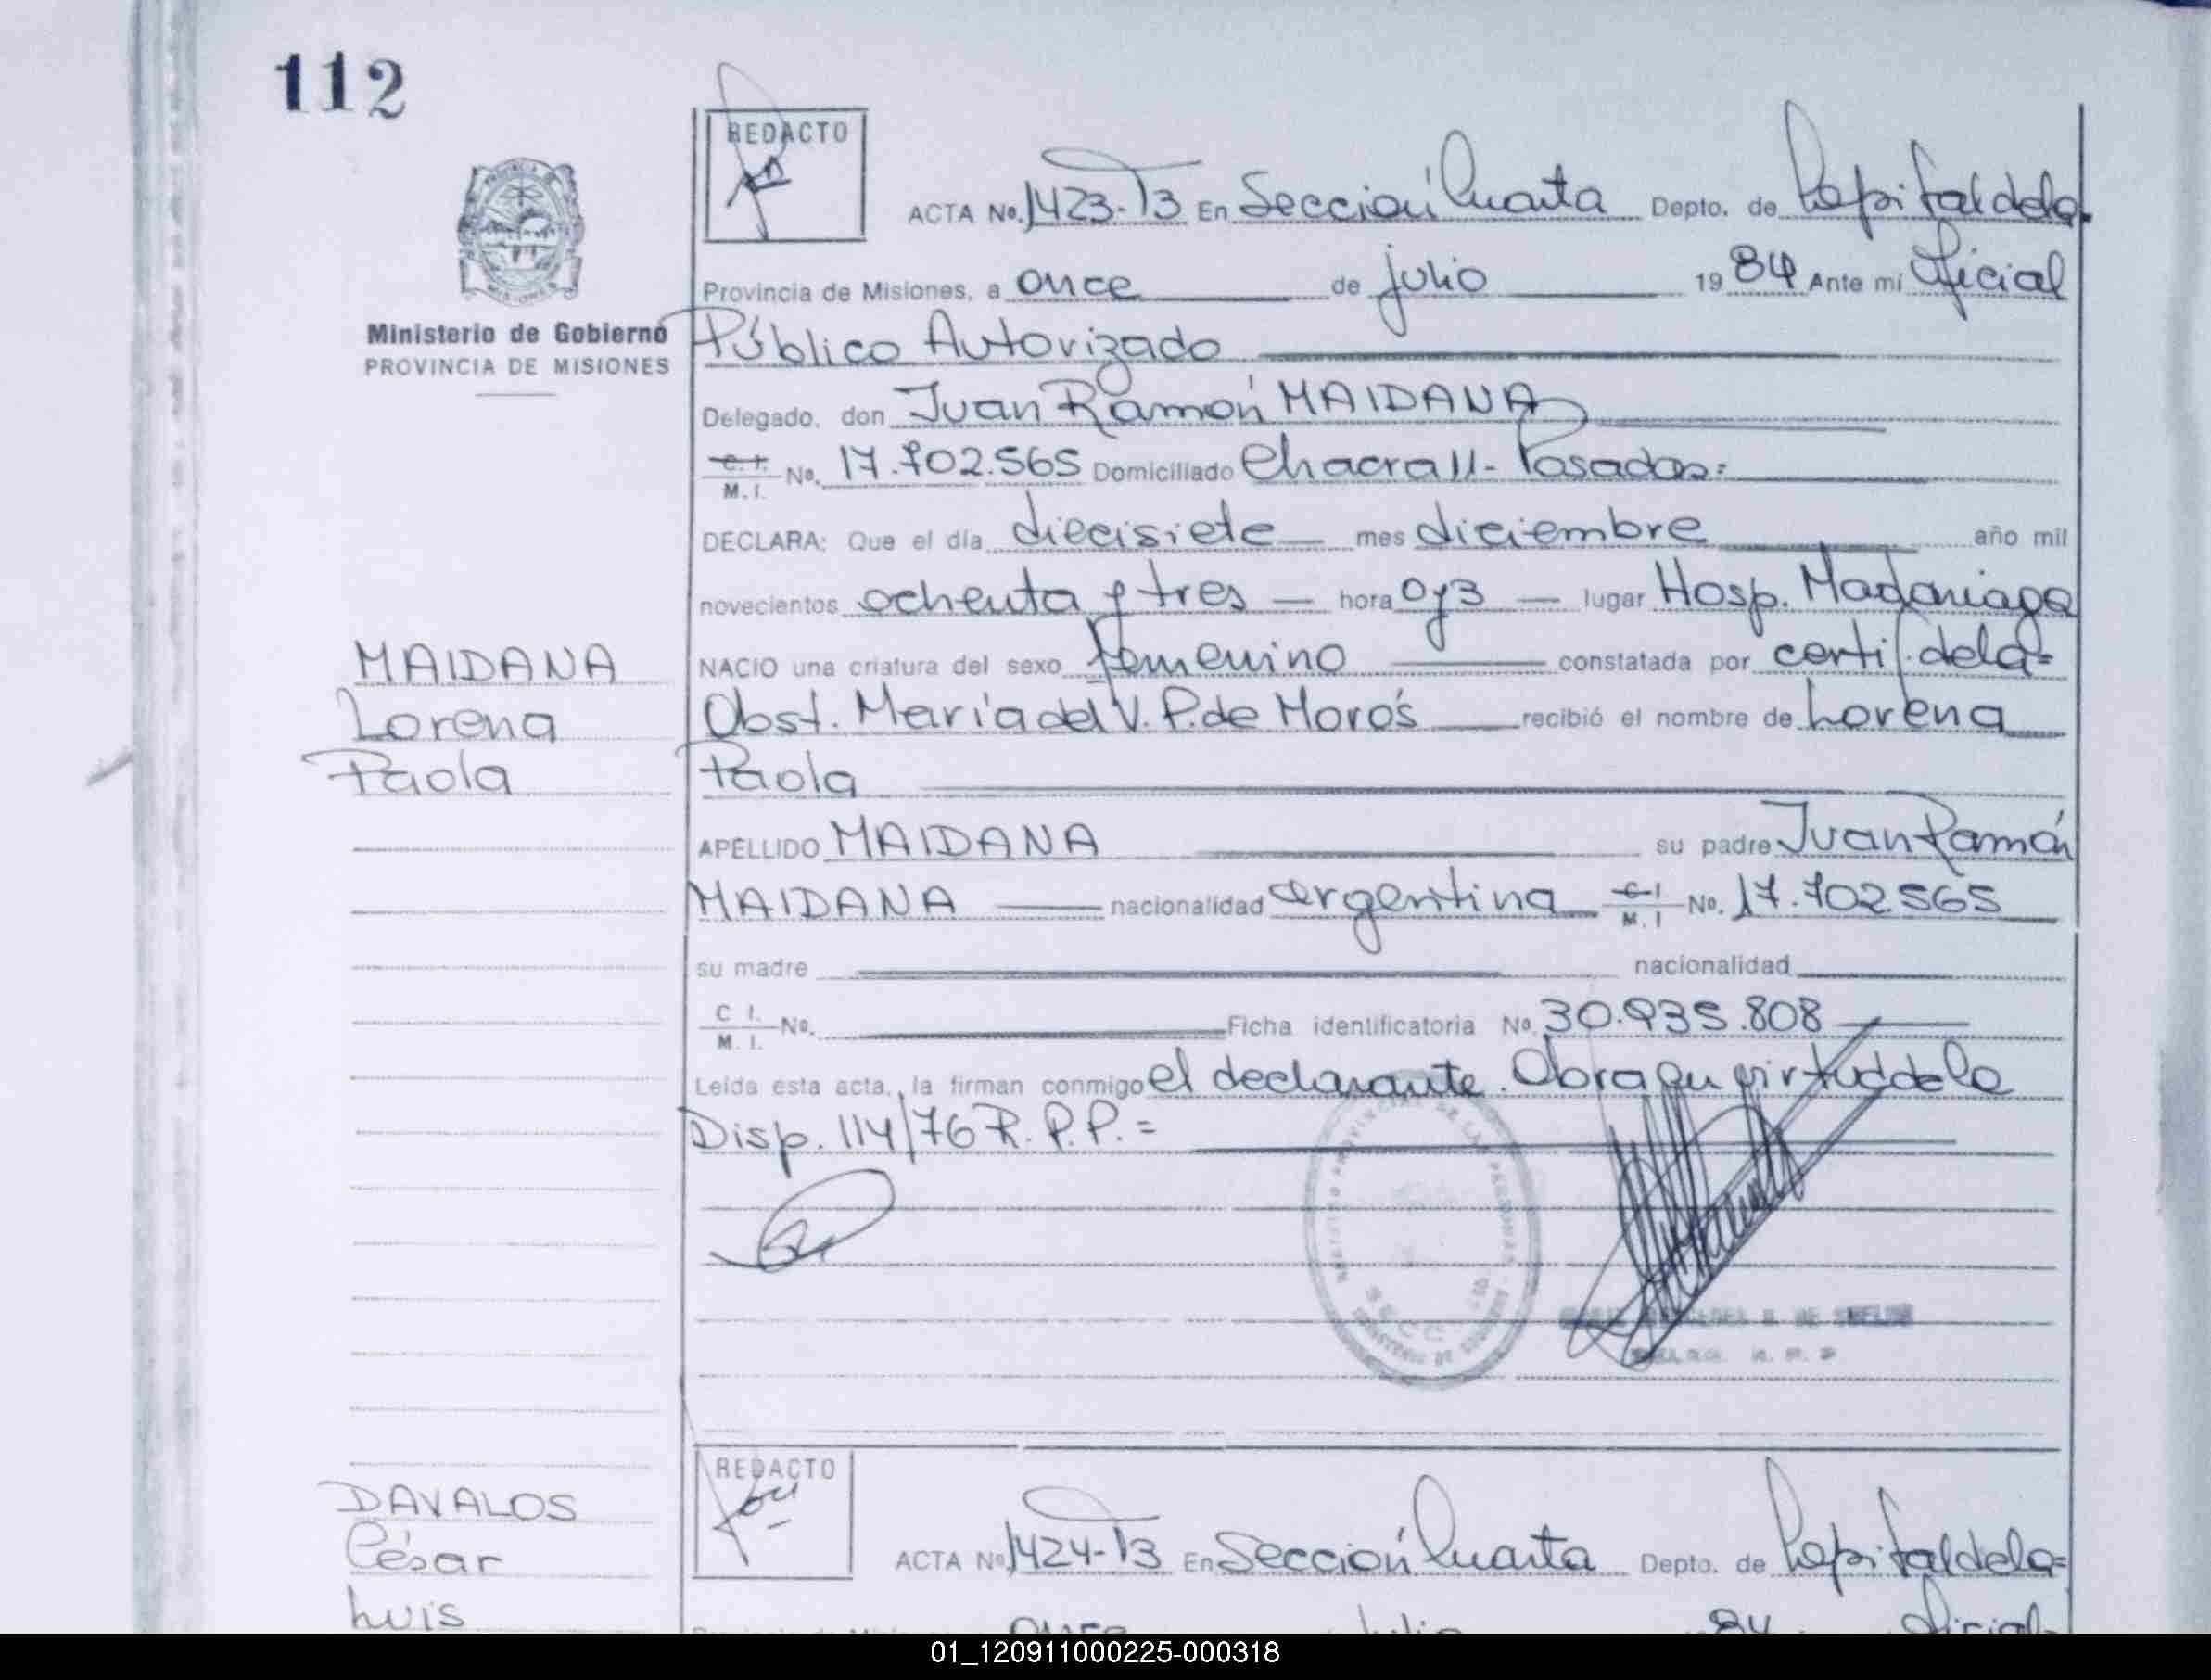 112
REDACTO
ACTA No. 1423-T3 En Sección Cuarta Depto. de Capital de la
Provincia de Misiones, a once de julio 1984 Ante mí Oficial
Ministerio de Gobierno
PROVINCIA DE MISIONES
Público Autorizado
Delegado, don Juan Ramón MAIDANA
C. I. M. I. No. 17.702.565 Domiciliado Chacra 11- Posadas=
DECLARA: Que el día diecisiete mes diciembre año mil
novecientos ochenta y tres hora 0y3 lugar Hosp. Madariaga
NACIO una criatura del sexo femenino constatada por certif. de la=
MAIDANA
Lorena
Paola
Obst. María del V. P. de Morós recibió el nombre de Lorena
Paola
APELLIDO MAIDANA su padre Juan Ramón
MAIDANA nacionalidad argentina C I M. I No. 17.702.565
su madre nacionalidad
C I. M. I. No. Ficha identificatoria No. 30.935.808
Leída esta acta, la firman conmigo el declarante. Obra en virtud de la
Disp. 114/76 R. P. P. =
REGISTRO PROVINCIAL DE LAS PERSONAS
SECC
MINISTERIO DE GOBIERNO
DAVALOS
César
Luis
REDACTO
ACTA No 1424-T3 En Sección Cuarta Depto. de Capital de la=
once julio 84 oficial
01_120911000225-000318